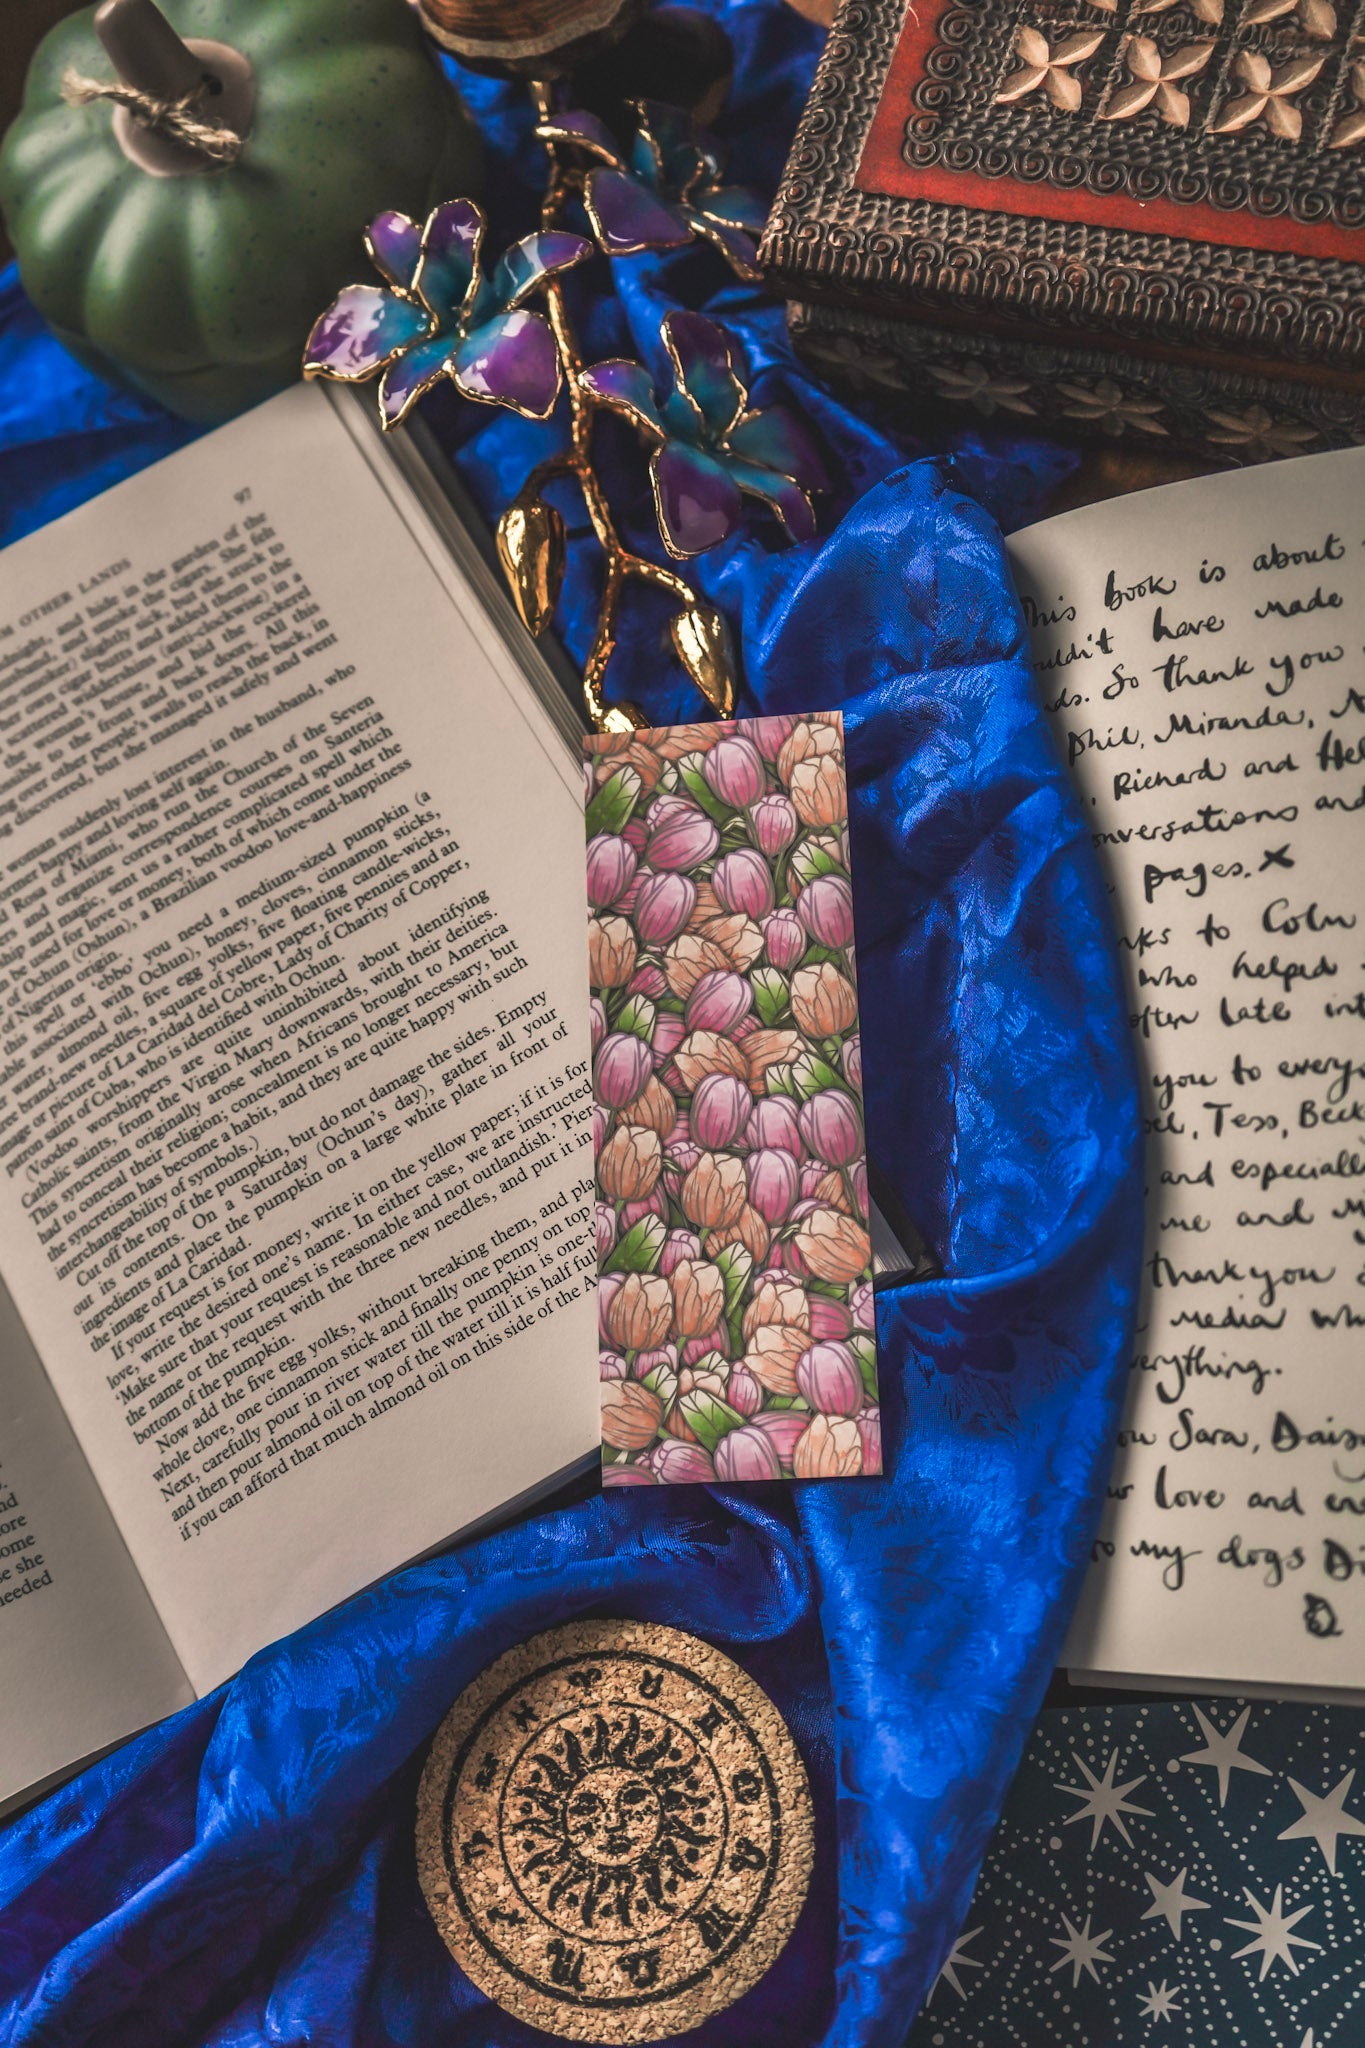 97
M OTHER LANDS
dnight, and hide in the garden of the
usband, and smoke the cigars. She felt
n-smoker) slightly sick, but she stuck to
her own cigar butts and added them to the
cattered widdershins (anti-clockwise) in a
the woman's house, and hid the cockerel
sible to the front and back doors. All this
ng over other people's walls to reach the back, in
g discovered, but she managed it safely and went
woman suddenly lost interest in the husband, who
ormer happy and loving self again.
d Rosa of Miami, who run the Church of the Seven
ers and organize correspondence courses on Santeria
ship and magic, sent us a rather complicated spell which
n be used for love or money, both of which come under the
e of Ochun (Oshun), a Brazilian voodoo love-and-happiness
of Nigerian origin.
this spell or 'ebbo' you need a medium-sized pumpkin (a
table associated with Ochun), honey, cloves, cinnamon sticks,
r water, almond oil, five egg yolks, five floating candle-wicks,
ree brand-new needles, a square of yellow paper, five pennies and an
image or picture of La Caridad del Cobre, Lady of Charity of Copper,
patron saint of Cuba, who is identified with Ochun.
(Voodoo worshippers are quite uninhibited about identifying
Catholic saints, from the Virgin Mary downwards, with their deities.
This syncretism originally arose when Africans brought to America
had to conceal their religion; concealment is no longer necessary, but
the syncretism has become a habit, and they are quite happy with such
interchangeability of symbols.)
Cut off the top of the pumpkin, but do not damage the sides. Empty
out its contents. On a Saturday (Ochun's day), gather all your
ingredients and place the pumpkin on a large white plate in front of
the image of La Caridad.
If your request is for money, write it on the yellow paper; if it is for
love, write the desired one's name. In either case, we are instructed
'Make sure that your request is reasonable and not outlandish.' Pier
the name or the request with the three new needles, and put it in
bottom of the pumpkin.
Now add the five egg yolks, without breaking them, and pla
whole clove, one cinnamon stick and finally one penny on top
Next, carefully pour in river water till the pumpkin is one-t
and then pour almond oil on top of the water till it is half full
if you can afford that much almond oil on this side of the A
nd
ore
ome
se she
needed
This book is about
ouldn't have made
ds. So thank you
Phil, Miranda, N
, Richard and Hel
onversations and
pages. x
nks to Colm
who helped
often late int
you to every
el, Tess, Bec
and especiall
me and My
thank you
media wh
verything.
ou Sara, Daisy
ur love and en
to my dogs Di